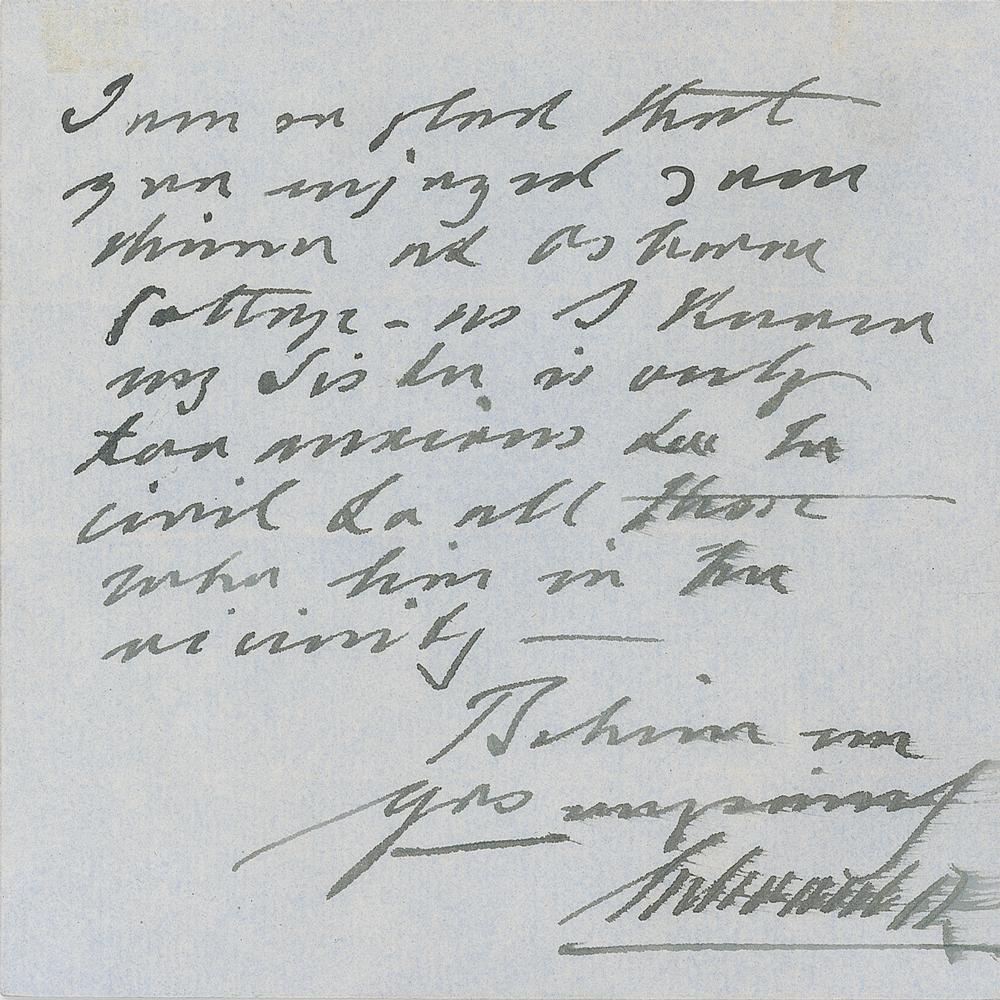 I am so glad that
you enjoyed your
dinner at Osborne
Cottage - as I know
my Sister is only
too anxious to be
civil to all those
who live in the
vicinity —
Believe me
yrs